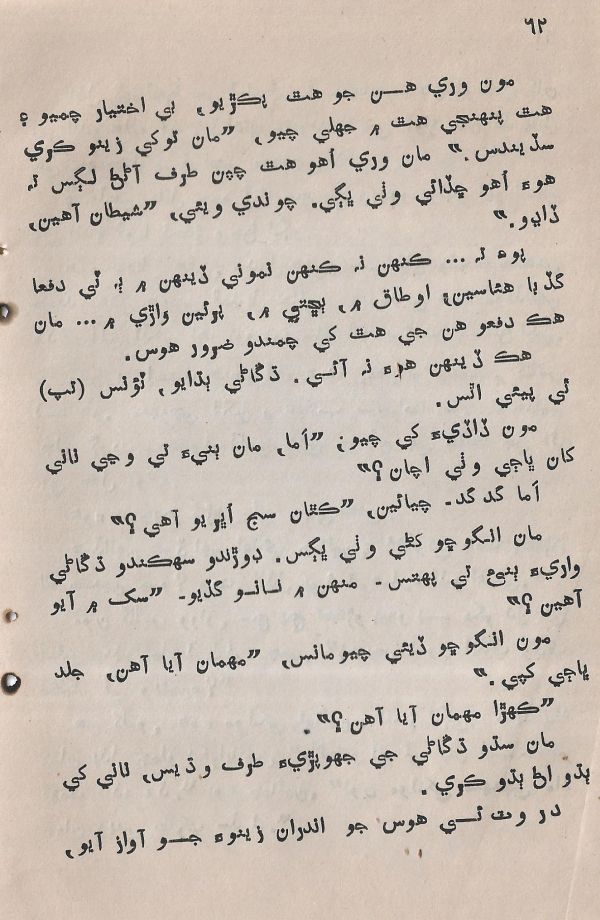 ٦٢
مون وري هـن جو هٿ پڪڙيو، بي اختيار چميو ۽
هٿ پنهنجي هٿ ۾ جهلي چيو، ”مان توکي زينو ڪري
سڏيندس.“ مان وري اُهو هٿ چپن طرف آڻڻ لڳس تہ
هوءَ اُهو ڇڏائي وٺي ڀڳي. چوندي ويئي، ”شيطان آهين،
ڏاڍو.“
پوءِ تہ ... ڪنهن نہ ڪنهن نموني ڏينهن ۾ ٻہ ٽي دفعا
گڏبا هئاسين؛ اوطاق ۾، ٻڇڙي ۾، پوئين واڙي ۾ ... مان
هڪ دفعو هن جي هٿ کي چمندو ضرور هوس.
هڪ ڏينهن هوءَ نہ آئي. ڌڳاڻي ٻڌايو، ٽوئنس (تپ)
ٿي پيئي اٿس.
مون ڏاڏيءَ کي چيو؛ ”اَما، مان ٻنيءَ تي وڃي ناني
کان ڀاڄي وٺي اچان؟“
اَما گدگد- چيائين، ”ڪٿان سج اُڀريو آهي؟“
مان انگوڇو کڻي وٺي ڀڳس. ڊوڙندو سهڪندو ڌڳاڻي
واريءَ ٻنيءَ تي پهتس- منهن ۾ نانو گڏيو- ”سڪ ۾ آيو
آهين؟“
مون انگوڇو ڏيئي چيومانس، ”مهمان آيا آهن، جلد
ڀاڄي کپي.“
”ڪهڙا مهمان آيا آهن؟“.
مان سڌو ڌڳاڻي جي جهوپڙيءَ طرف وڌيس، ناني کي
ٻڌو اڻ ٻڌو ڪري.
در وٽ ئـي هوس جو اندران زينوءَ جـو آواز آيو،